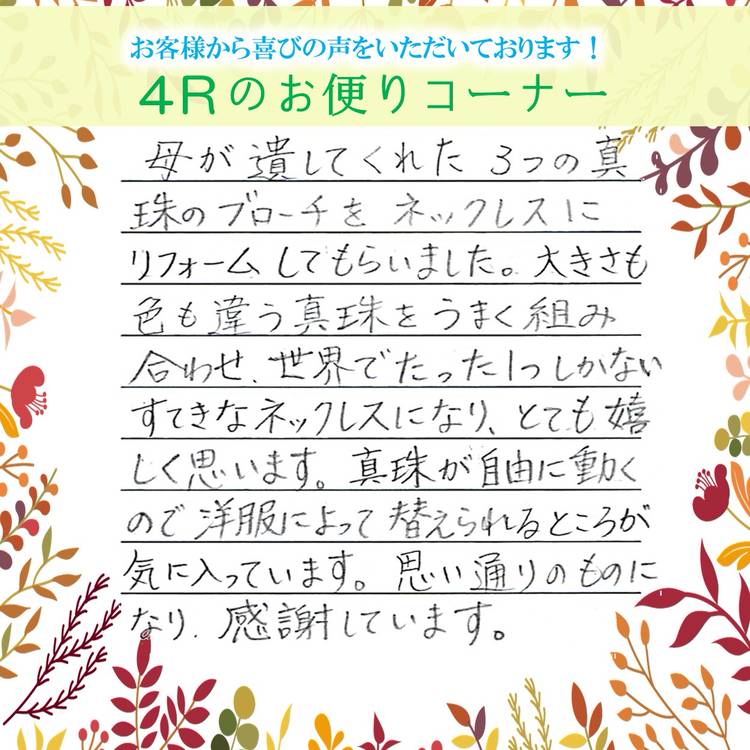 お客様から喜びの声をいただいております！
4Rのお便りコーナー
母が遺してくれた3つの真
珠のブローチをネックレスに
リフォームしてもらいました。大きさも
色も違う真珠をうまく組み
合わせ、世界でたった1つしかない
すてきなネックレスになり、とても嬉
しく思います。真珠が自由に動く
ので洋服によって替えられるところが
気に入っています。思い通りのものに
なり、感謝しています。